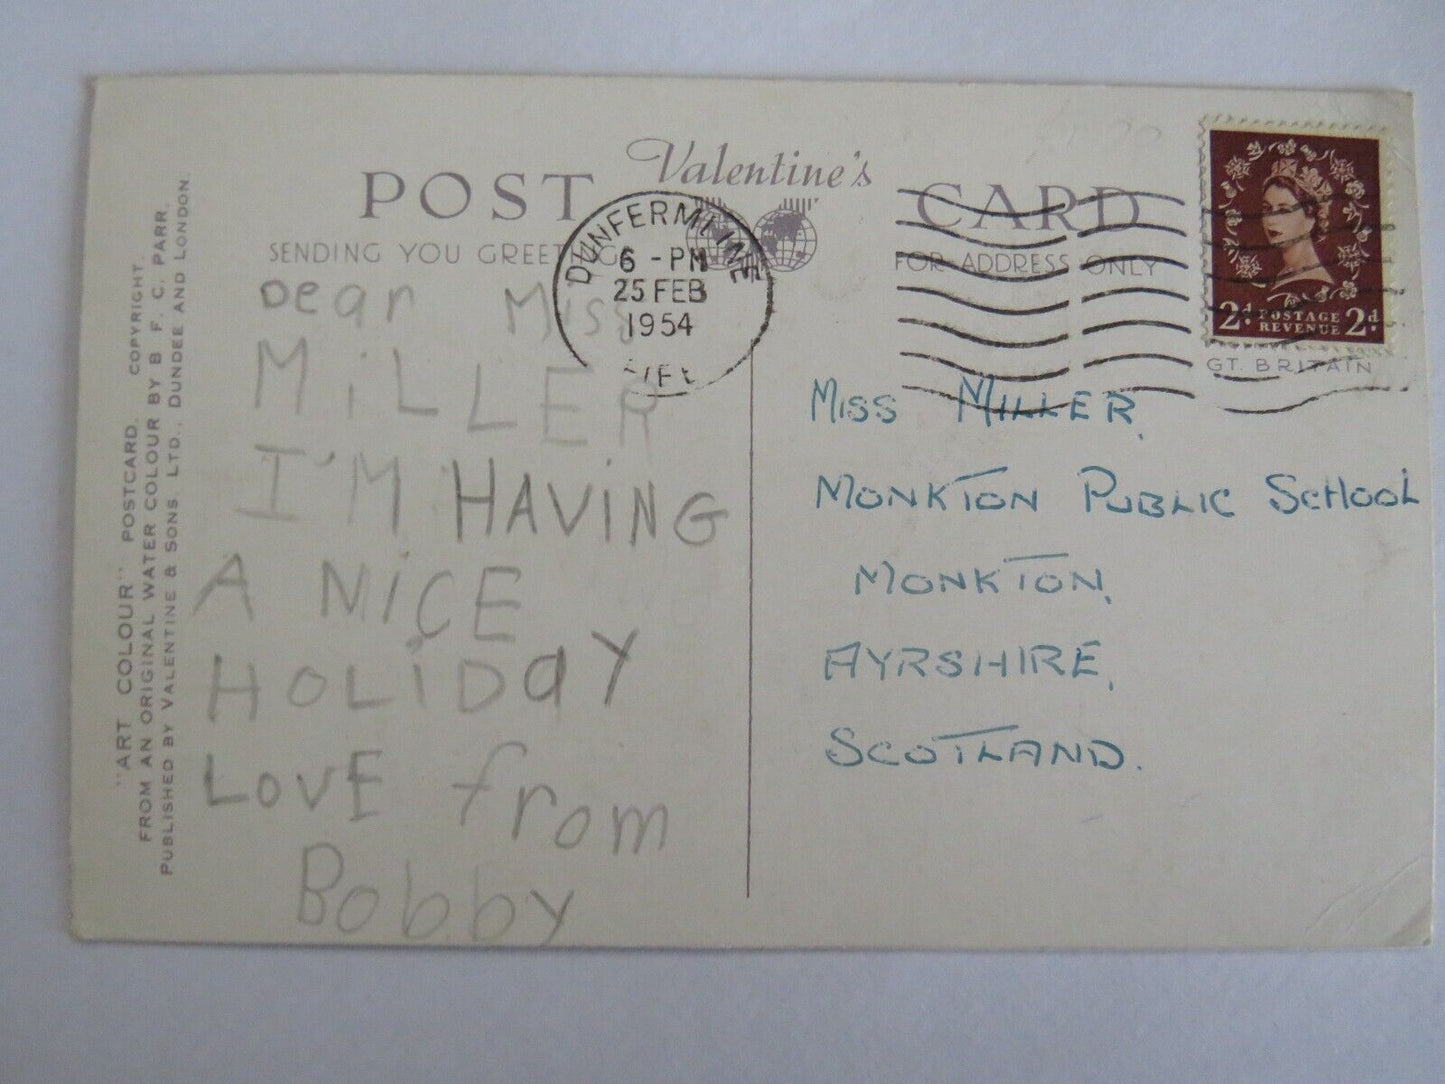 POST Valentine's CARD
SENDING YOU GREETINGS
FOR ADDRESS ONLY
DUNFERMLINE
6 - PM
25 FEB
1954
FIFE
2d. POSTAGE REVENUE 2d.
GT. BRITAIN
Dear Miss
MiLLER
I'M HAVING
A NiCE
HOLiDaY
LOVE from
Bobby
MISS MILLER,
MONKTON PUBLIC SCHOOL
MONKTON,
AYRSHIRE,
SCOTLAND.
"ART COLOUR" POSTCARD. COPYRIGHT.
FROM AN ORIGINAL WATER COLOUR BY B. F. C. PARR.
PUBLISHED BY VALENTINE & SONS, LTD., DUNDEE AND LONDON.